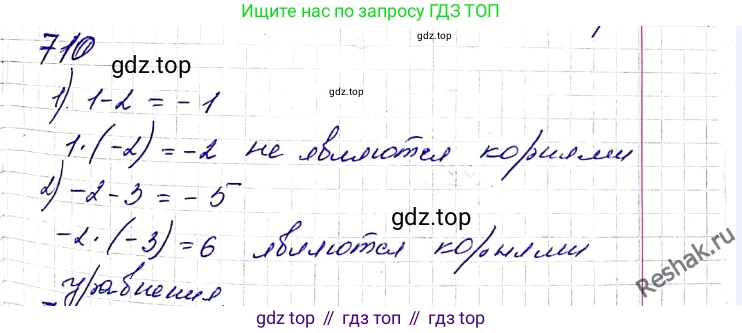 Ищите нас по запросу ГДЗ ТОП
710
gdz.top
1) 1-2 = -1
1·(-2) = -2 не являются корнями
2) -2-3 = -5
gdz.top
-2·(-3) = 6 являются корнями
уравнения.
Reshak.ru
gdz.top // гдз топ // гдз.топ